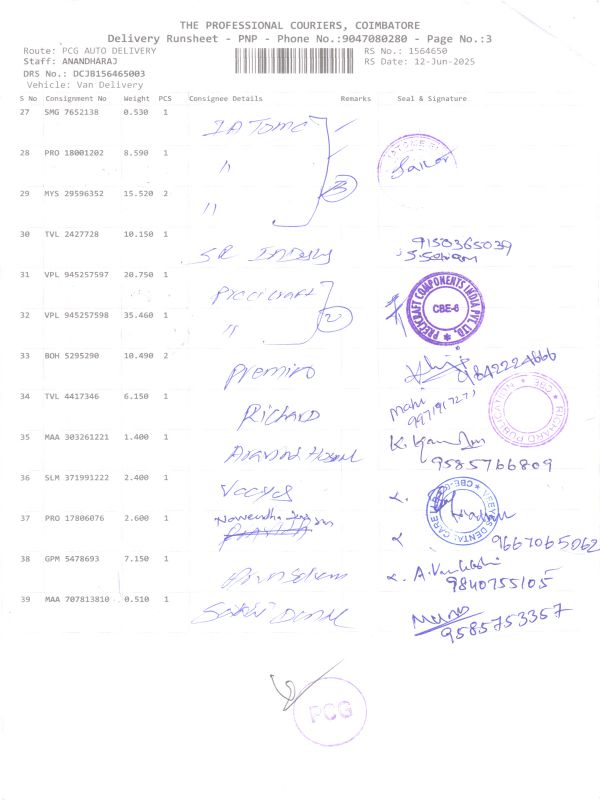 THE PROFESSIONAL COURIERS, COIMBATORE
Delivery Runsheet - PNP - Phone No.:9047080280 - Page No.:3
Route: PCG AUTO DELIVERY
RS No.: 1564650
Staff: ANANDHARAJ
RS Date: 12-Jun-2025
DRS No.: DCJB156465003
Vehicle: Van Delivery
S No Consignment No Weight PCS Consignee Details Remarks Seal & Signature
27 SMG 7652138 0.530 1
28 PRO 18001202 8.590 1
"
3
29 MYS 29596352 15.520 2
"
30 TVL 2427728 10.150 1
SR
9150365039
31 VPL 945257597 20.750 1
Precicraft
PRECICRAFT COMPONENTS INDIA PVT. LTD. CBE-6
32 VPL 945257598 35.460 1
"
2
33 BOH 5295290 10.490 2
Premiro
9842224666
34 TVL 4417346 6.150 1
Richard
Mani
RICHARD PUBLICATION
35 MAA 303261221 1.400 1
Aravind
9585766809
36 SLM 371991222 2.400 1
DENTAL CARE
37 PRO 17806076 2.600 1
9667065062
38 GPM 5478693 7.150 1
9840755105
39 MAA 707813810 0.510 1
Sakthi Dental
9585753357
PCG